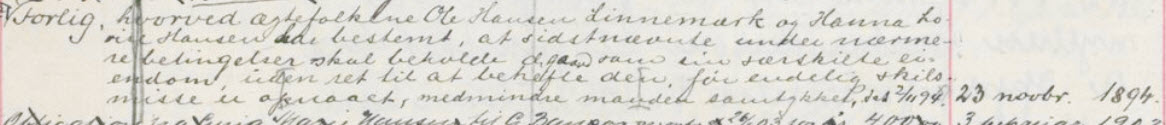 Forlig, hvorved ægtefolkene Ole Hansen Linnemark og Hanna Lo-
vise Hansen har bestemt, at sidstnævnte under nærme-
re betingelser skal beholde d. gaard som sin særskilte ei-
endom, uden ret til at behefte den, før endelig skils-
misse er opnaaet, medmindre manden samtykker, dat 2/11 94. 23 novbr. 1894.
Hansen til G. 400